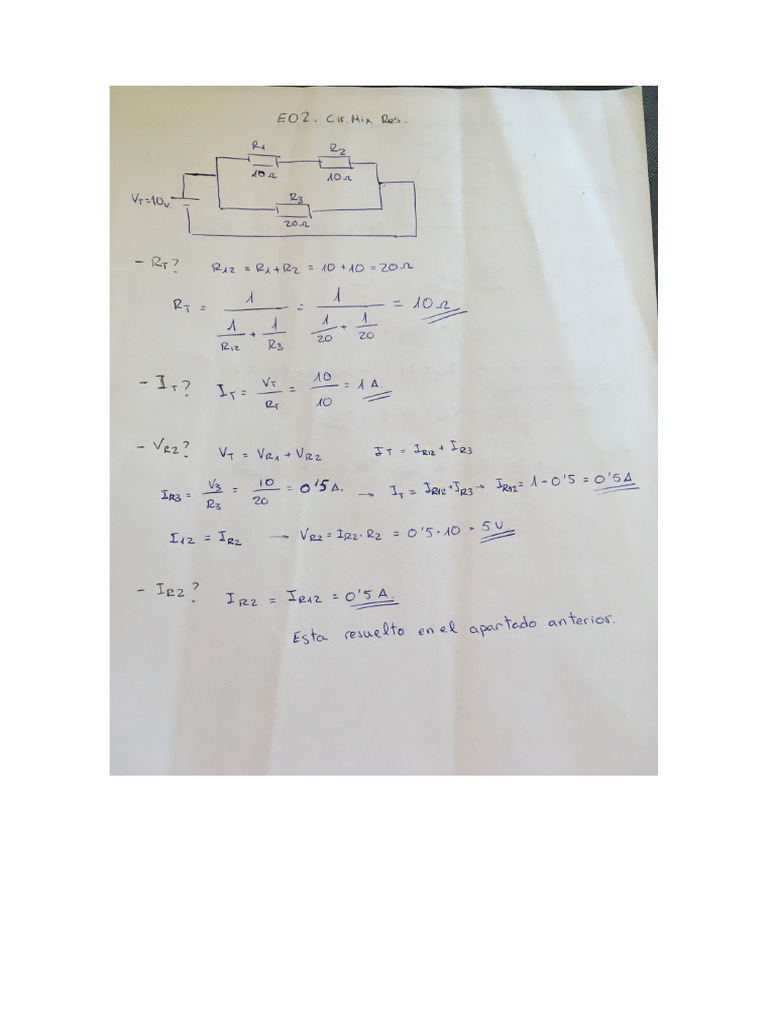 E02. Cir. Mix Res.
R1 R2
10Ω 10Ω
VT=10v.
R3
20Ω
- RT? R12 = R1 + R2 = 10 + 10 = 20Ω
RT = 1 / (1/R12 + 1/R3) = 1 / (1/20 + 1/20) = 10Ω
- IT? IT = VT/RT = 10/10 = 1 A.
- VR2? VT = VR1 + VR2 IT = IR12 + IR3
IR3 = V3/R3 = 10/20 = 0'5 A. → IT = IR12 + IR3 → IR12 = 1 - 0'5 = 0'5 A
I12 = IR2 → VR2 = IR2 · R2 = 0'5 · 10 = 5 v
- IR2? IR2 = IR12 = 0'5 A.
Esta resuelto en el apartado anterior.